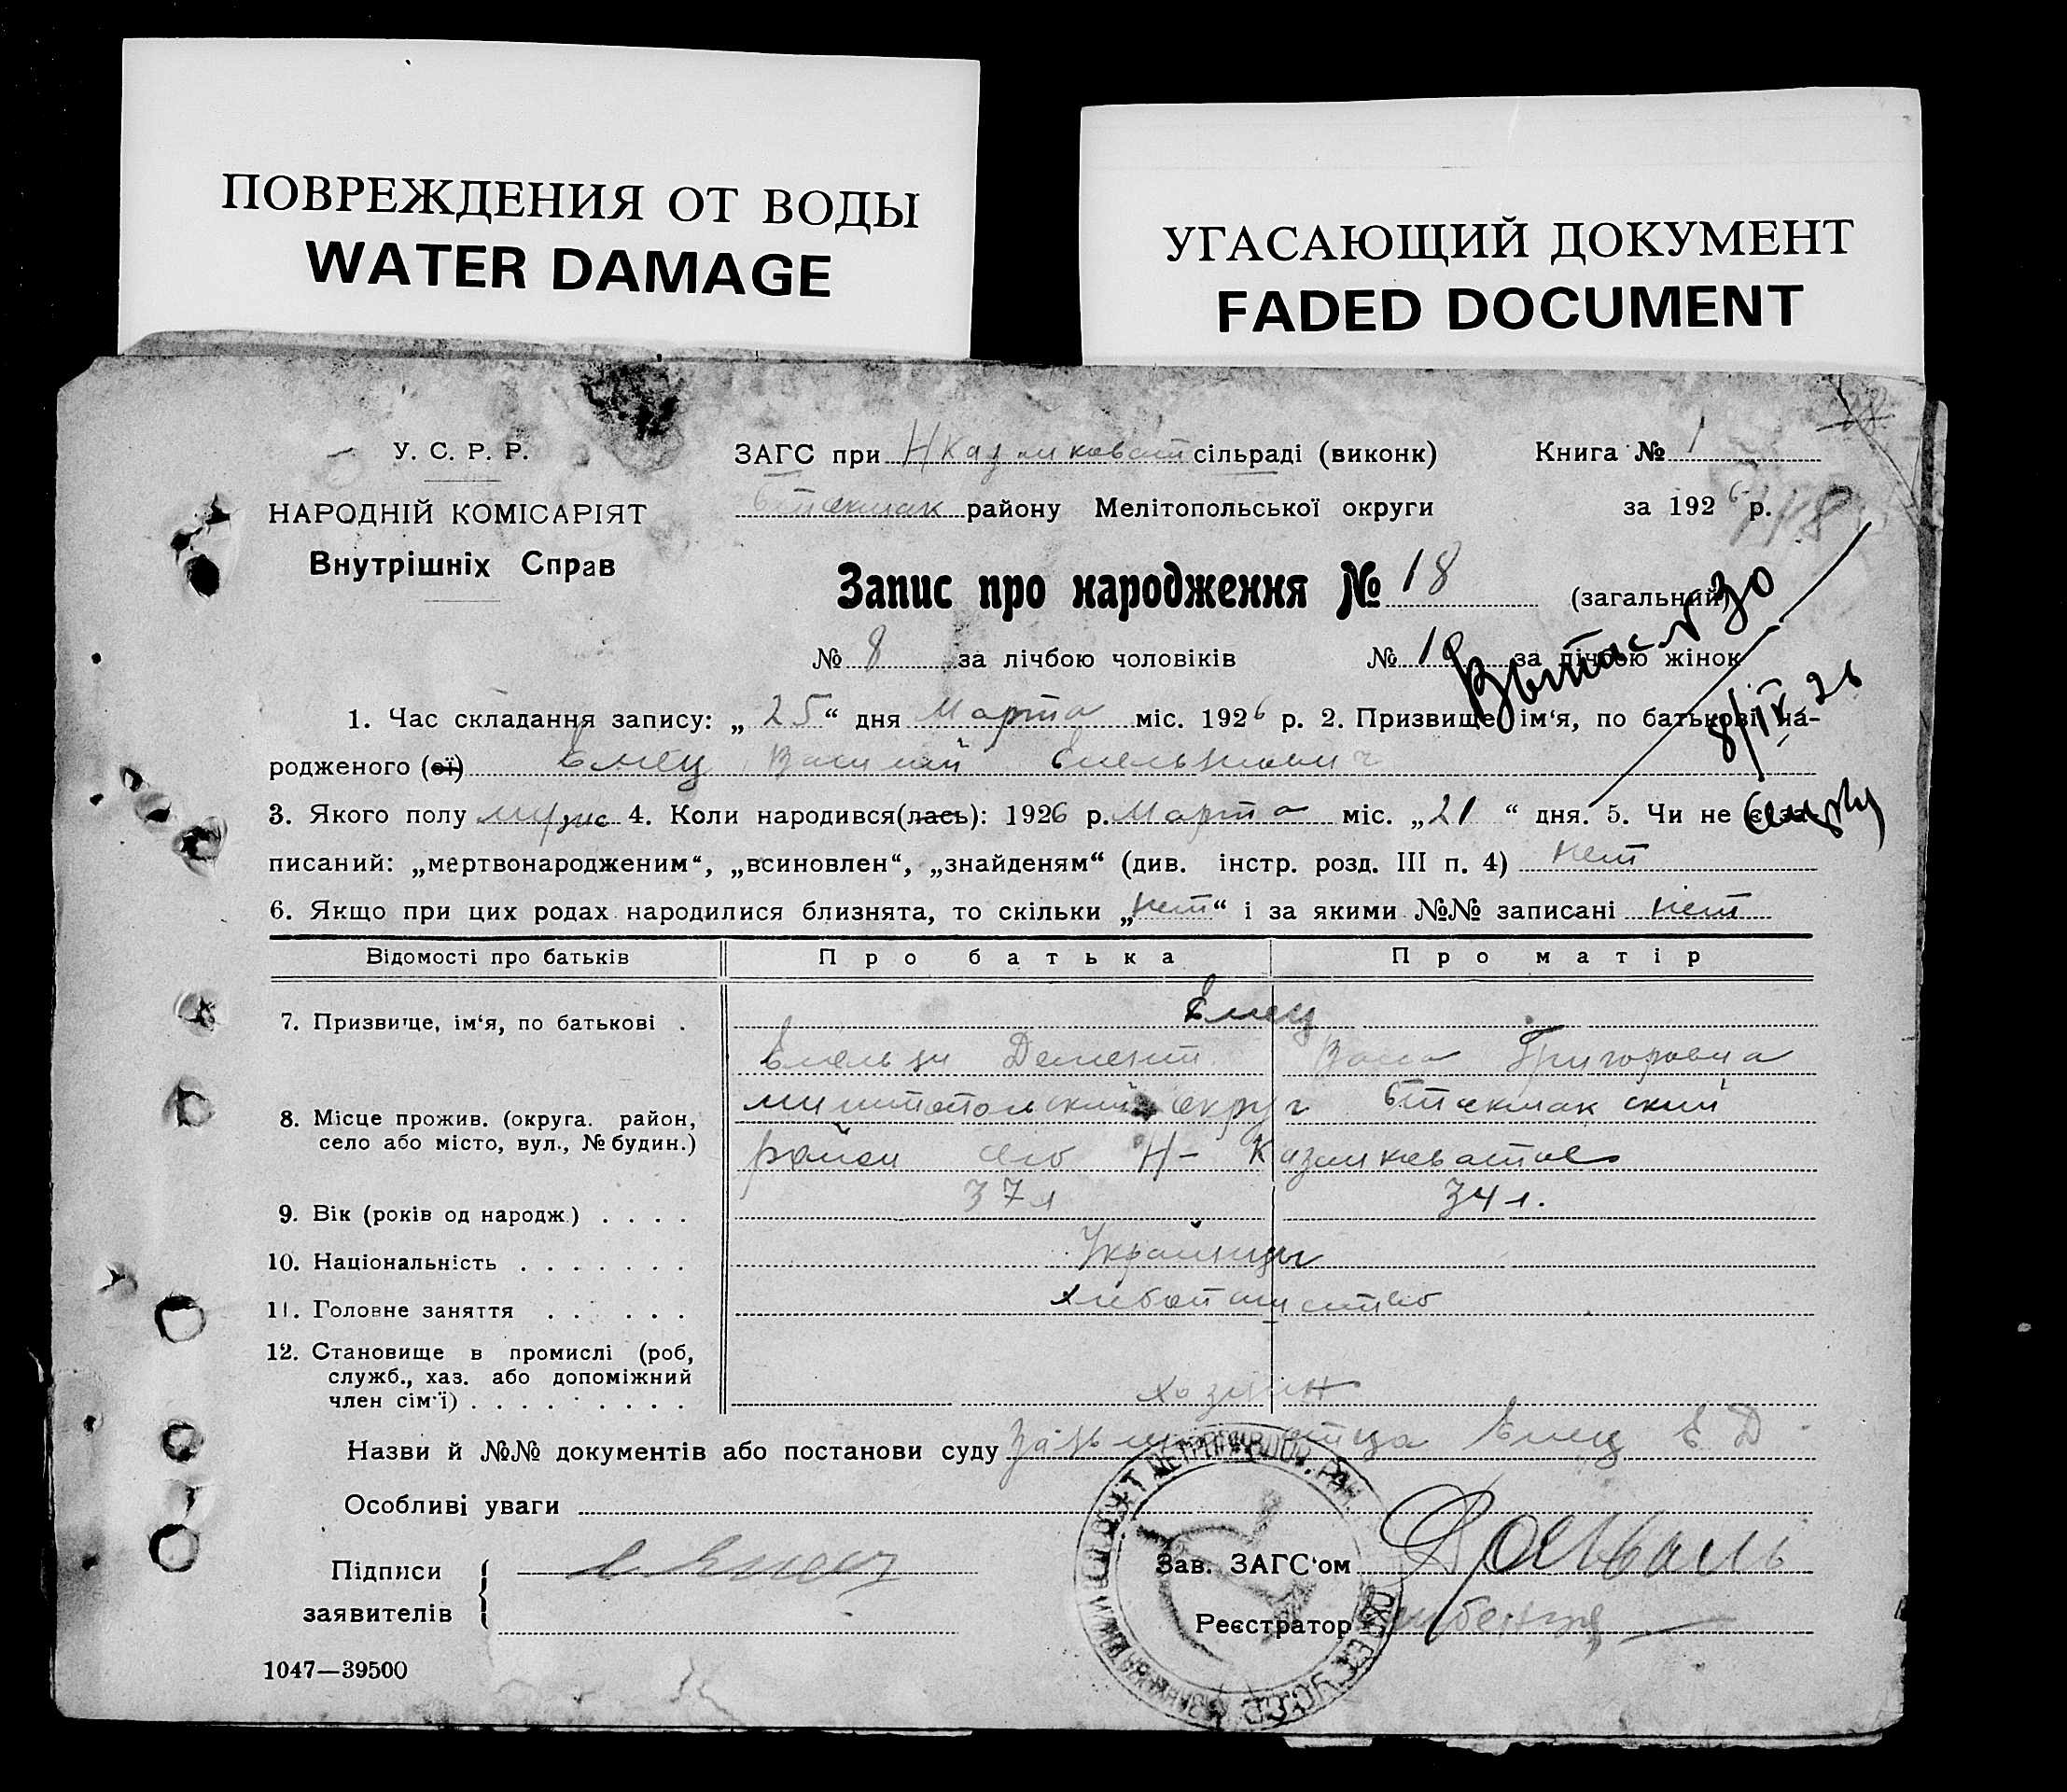 ПОВРЕЖДЕНИЯ ОТ ВОДЫ
WATER DAMAGE
УГАСАЮЩИЙ ДОКУМЕНТ
FADED DOCUMENT
У. С. Р. Р. ЗАГС при сільраді (виконк) Книга № 1
НАРОДНІЙ КОМІСАРІЯТ району Мелітопольської округи за 1926 р.
Внутрішніх Справ
Запис про народження № 18 (загальний)
№ 8 за лічбою чоловіків № 10 за лічбою жінок
Выпис № 30
8/IV 26
1. Час складання запису: „25“ дня Марта міс. 1926 р. 2. Призвище, ім‘я, по батькові на-
родженого (ої) Емец Василий Емельянович
3. Якого полу муж 4. Коли народився(лась): 1926 р. Марта міс. „21“ дня. 5. Чи не є за-
писаний: „мертвонародженим“, „всиновлен“, „знайденям“ (див. інстр. розд. III п. 4) нет
6. Якщо при цих родах народилися близнята, то скільки „нет“ і за якими №№ записані нет
Відомості про батьків Про батька Про матір
7. Призвище, ім‘я, по батькові . Емец
Емельян Демент Григоровна
8. Місце прожив. (округа. район, округ Бтокмакский
село або місто, вул., № будин.) район село Н-
9. Вік (років од народж.) . . . . 37 л 34 л.
10. Національність . . . . . . . Украинцы
11. Головне заняття . . . . . . хлебопашество
12. Становище в промислі (роб,
служб., хаз. або допоміжний
член сім‘ї) . . . . . . . . . хозяин
Назви й №№ документів або постанови суду Емец Е Д
Особливі уваги
Підписи Е Емец Зав. ЗАГС‘ом
заявителів Реєстратор
1047—39500